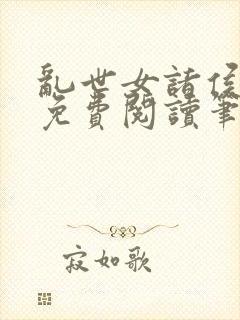 亂世女諸侯
免費閱讀筆
寂如歌